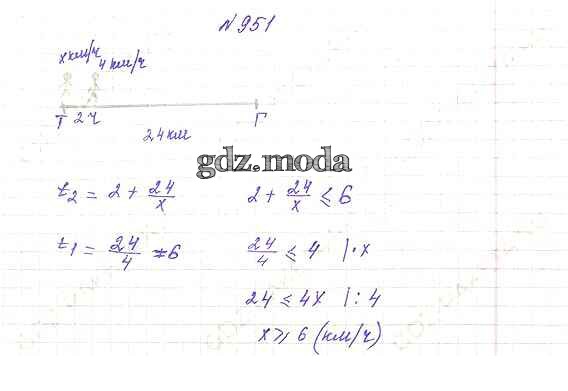 N951
x км/ч
4 км/ч
T 2ч Г
24 км
gdz.moda
t₂ = 2 + 24/x
2 + 24/x ⩽ 6
t₁ = 24/4 = 6
24/4 ⩽ 4 |·x
24 ⩽ 4x |: 4
x ⩾ 6 (км/ч)